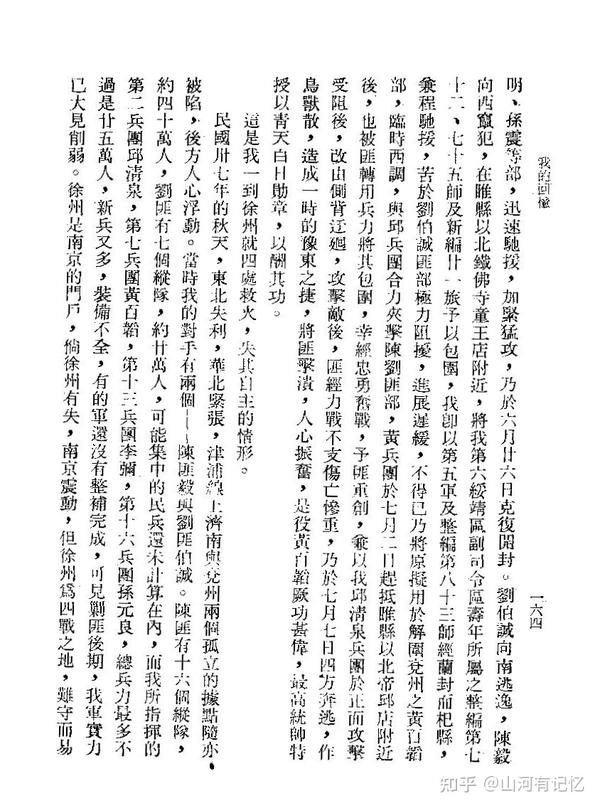 我的回憶
一六四
明、孫震等部，迅速馳援，加緊猛攻，乃於六月廿六日克復開封。劉伯誠向南逃逸，陳毅
向西竄犯，在睢縣以北鐵佛寺童王店附近，將我第六綏靖區副司令區壽年所屬之整編第七
十二、七十五師及新編廿一旅予以包圍，我卽以第五軍及整編第八十三師經蘭封而杞縣，
兼程馳援，苦於劉伯誠匪部極力阻擾，進展遲緩，不得已乃將原擬用於解圍兗州之黃百韜
部，臨時西調，與邱兵團合力夾擊陳劉匪部，黃兵團於七月二日趕抵睢縣以北帝邱店附近
後，也被匪轉用兵力將其包圍，幸經忠勇奮戰，予匪重創，兼以我邱清泉兵團於正面攻擊
受阻後，改由側背迂迴，攻擊敵後，匪經力戰不支傷亡慘重，乃於七月七日四方奔逃，作
鳥獸散，造成一時的豫東之捷，將匪擊潰，人心振奮，是役黃百韜厥功甚偉，最高統帥特
授以青天白日勛章，以酬其功。
這是我一到徐州就四處救火，失其自主的情形。
民國卅七年的秋天，東北失利，華北緊張，津浦線上濟南與兗州兩個孤立的據點隨亦
被陷，後方人心浮動。當時我的對手有兩個——陳匪毅與劉匪伯誠。陳匪有十六個縱隊，
約四十萬人，劉匪有七個縱隊，約廿萬人，可能集中的民兵還未計算在內，而我所指揮的
第二兵團邱清泉，第七兵團黃百韜，第十三兵團李彌，第十六兵團孫元良，總兵力最多不
過是廿五萬人，新兵又多，裝備不全，有的軍還沒有整補完成，可見剿匪後期，我軍實力
已大見削弱。徐州是南京的門戶，倘徐州有失，南京震動，但徐州爲四戰之地，難守而易
知乎 @山河有记忆